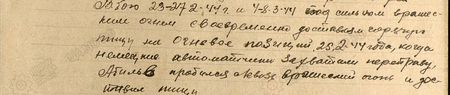 В бою 23-27.2.44 г и 7-8.3.44 под сильным вражес-
ким огнем своевременно доставлял горячую
пищу на огневые позиции 25.2.44 года, когда
немецкие автоматчики захватили переправу
пробился сквозь вражеский огонь и дос-
тавил пищу.